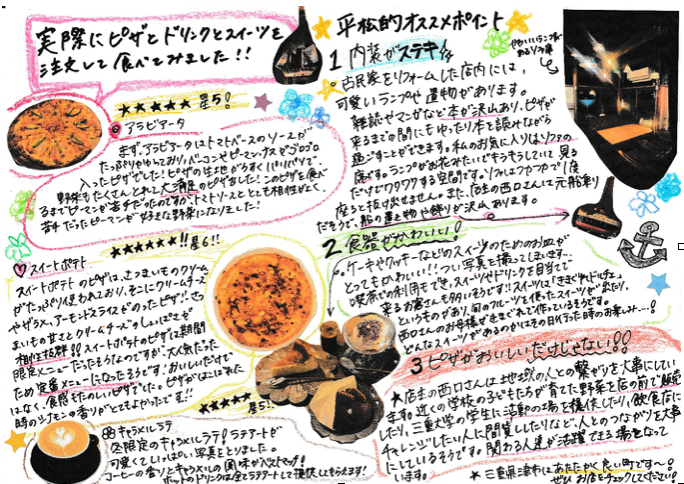 実際にピザとドリンクとスイーツを
注文して食べてみました!!
★★★★★ 星5!
アラビアータ
まず、アラビアータはトマトベースのソースが
たっぷりぬってあり、ベーコンやピーマン、ナスがゴロゴロ
入ったピザでした!ピザの生地がうすくパリパリで、
野菜もたくさんとれて大満足のピザでした!このピザを食べ
るまでピーマンが苦手だったのですが、トマトソースととても相性がよく、
苦手だったピーマンが好きな野菜になりました!
★★★★★★!!星6!!
♡スイートポテト
スイートポテトのピザは、さつまいものクリーム
がたっぷり使われており、そこにクリームチーズ
やザラメ、アーモンドスライスがのったピザで、さつ
まいもの甘さとクリームチーズのしょっぱさが
相性抜群!!スイートポテトのピザは期間
限定メニューだったそうなのですが、大人気だった
ため定番メニューになったそうです!おいしいだけで
はなく、食感もたのしいピザでした。ピザがはこばれた
時のシナモンの香りがとてもよかったです!!
★★★★★ 星5!
キャラメルラテ
冬限定のキャラメルラテ!ラテアートが
可愛くていっぱい写真をとりました。
コーヒーの香りとキャラメルの風味がベストマッチ!
ホットのドリンクは全てラテアートして提供してもらえます!
★平松的オススメポイント★
1 内装がステキ
古民家をリフォームした店内には、
可愛いランプや置物があります。
雑誌やマンガなど本が沢山あり、ピザが
来るまでの間にもゆったり本を読みながら
過ごすことができます。私のお気に入りはソファの
席です。ランプがお花みたいでキラキラしていて見る
だけでワクワクする空間です。ソファはフカフカで1度
座ると抜け出せません。また、店主の西口さんは元船乗り
だそうで、船の置き物や飾りが沢山あります。
かわいいランプが
あるソファ席
2 食器がかわいい!
ケーキやクッキーなどのスイーツのためのお皿が
とってもかわいい!!つい写真を撮ってしまいます…
喫茶店の利用もでき、スイーツやドリンクを目当てで
来るお客さんも多いそうです!!スイーツは「きまぐれドルチェ」
というものがあり、旬のフルーツを使ったスイーツが出たり、
西口さんのお母様がきまぐれで作っているそうです。
どんなスイーツがあるのかはその日行った時のお楽しみ…!
3 ピザがおいしいだけじゃない!!
★店主の西口さんは地域の人との繋がりを大事にしてい
ます。近くの学校の子どもたちが育てた野菜を店の前で販売
したり、三重大学の学生に活動の場を提供したり、飲食店に
チャレンジしたい人に間貸ししたりなど、人とのつながりを大事
にしているそうです。関わる人達が活躍できる場をなって
います。
★三重県津市はあたたかく良い町です〜!
ぜひお店をチェックしてください!